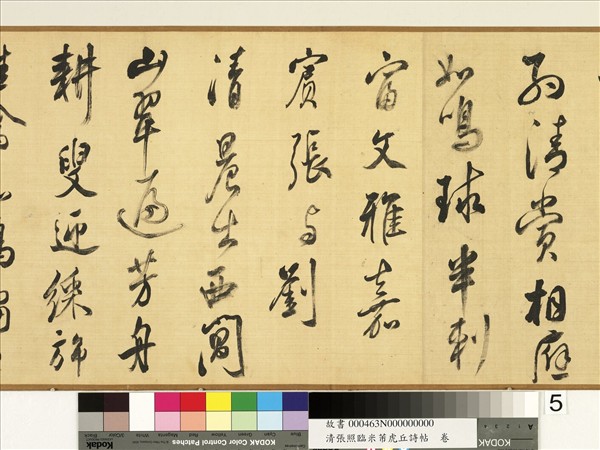 清賞相應
如鳴球半刺
富文雅嘉
賓張與劉
清晨出西
山翠逼芳舟
耕叟迎綵旆
5
故書 000463N000000000
清張照臨米芾虎丘詩帖 卷
KODAK Color Control Patches
Kodak
KODAK